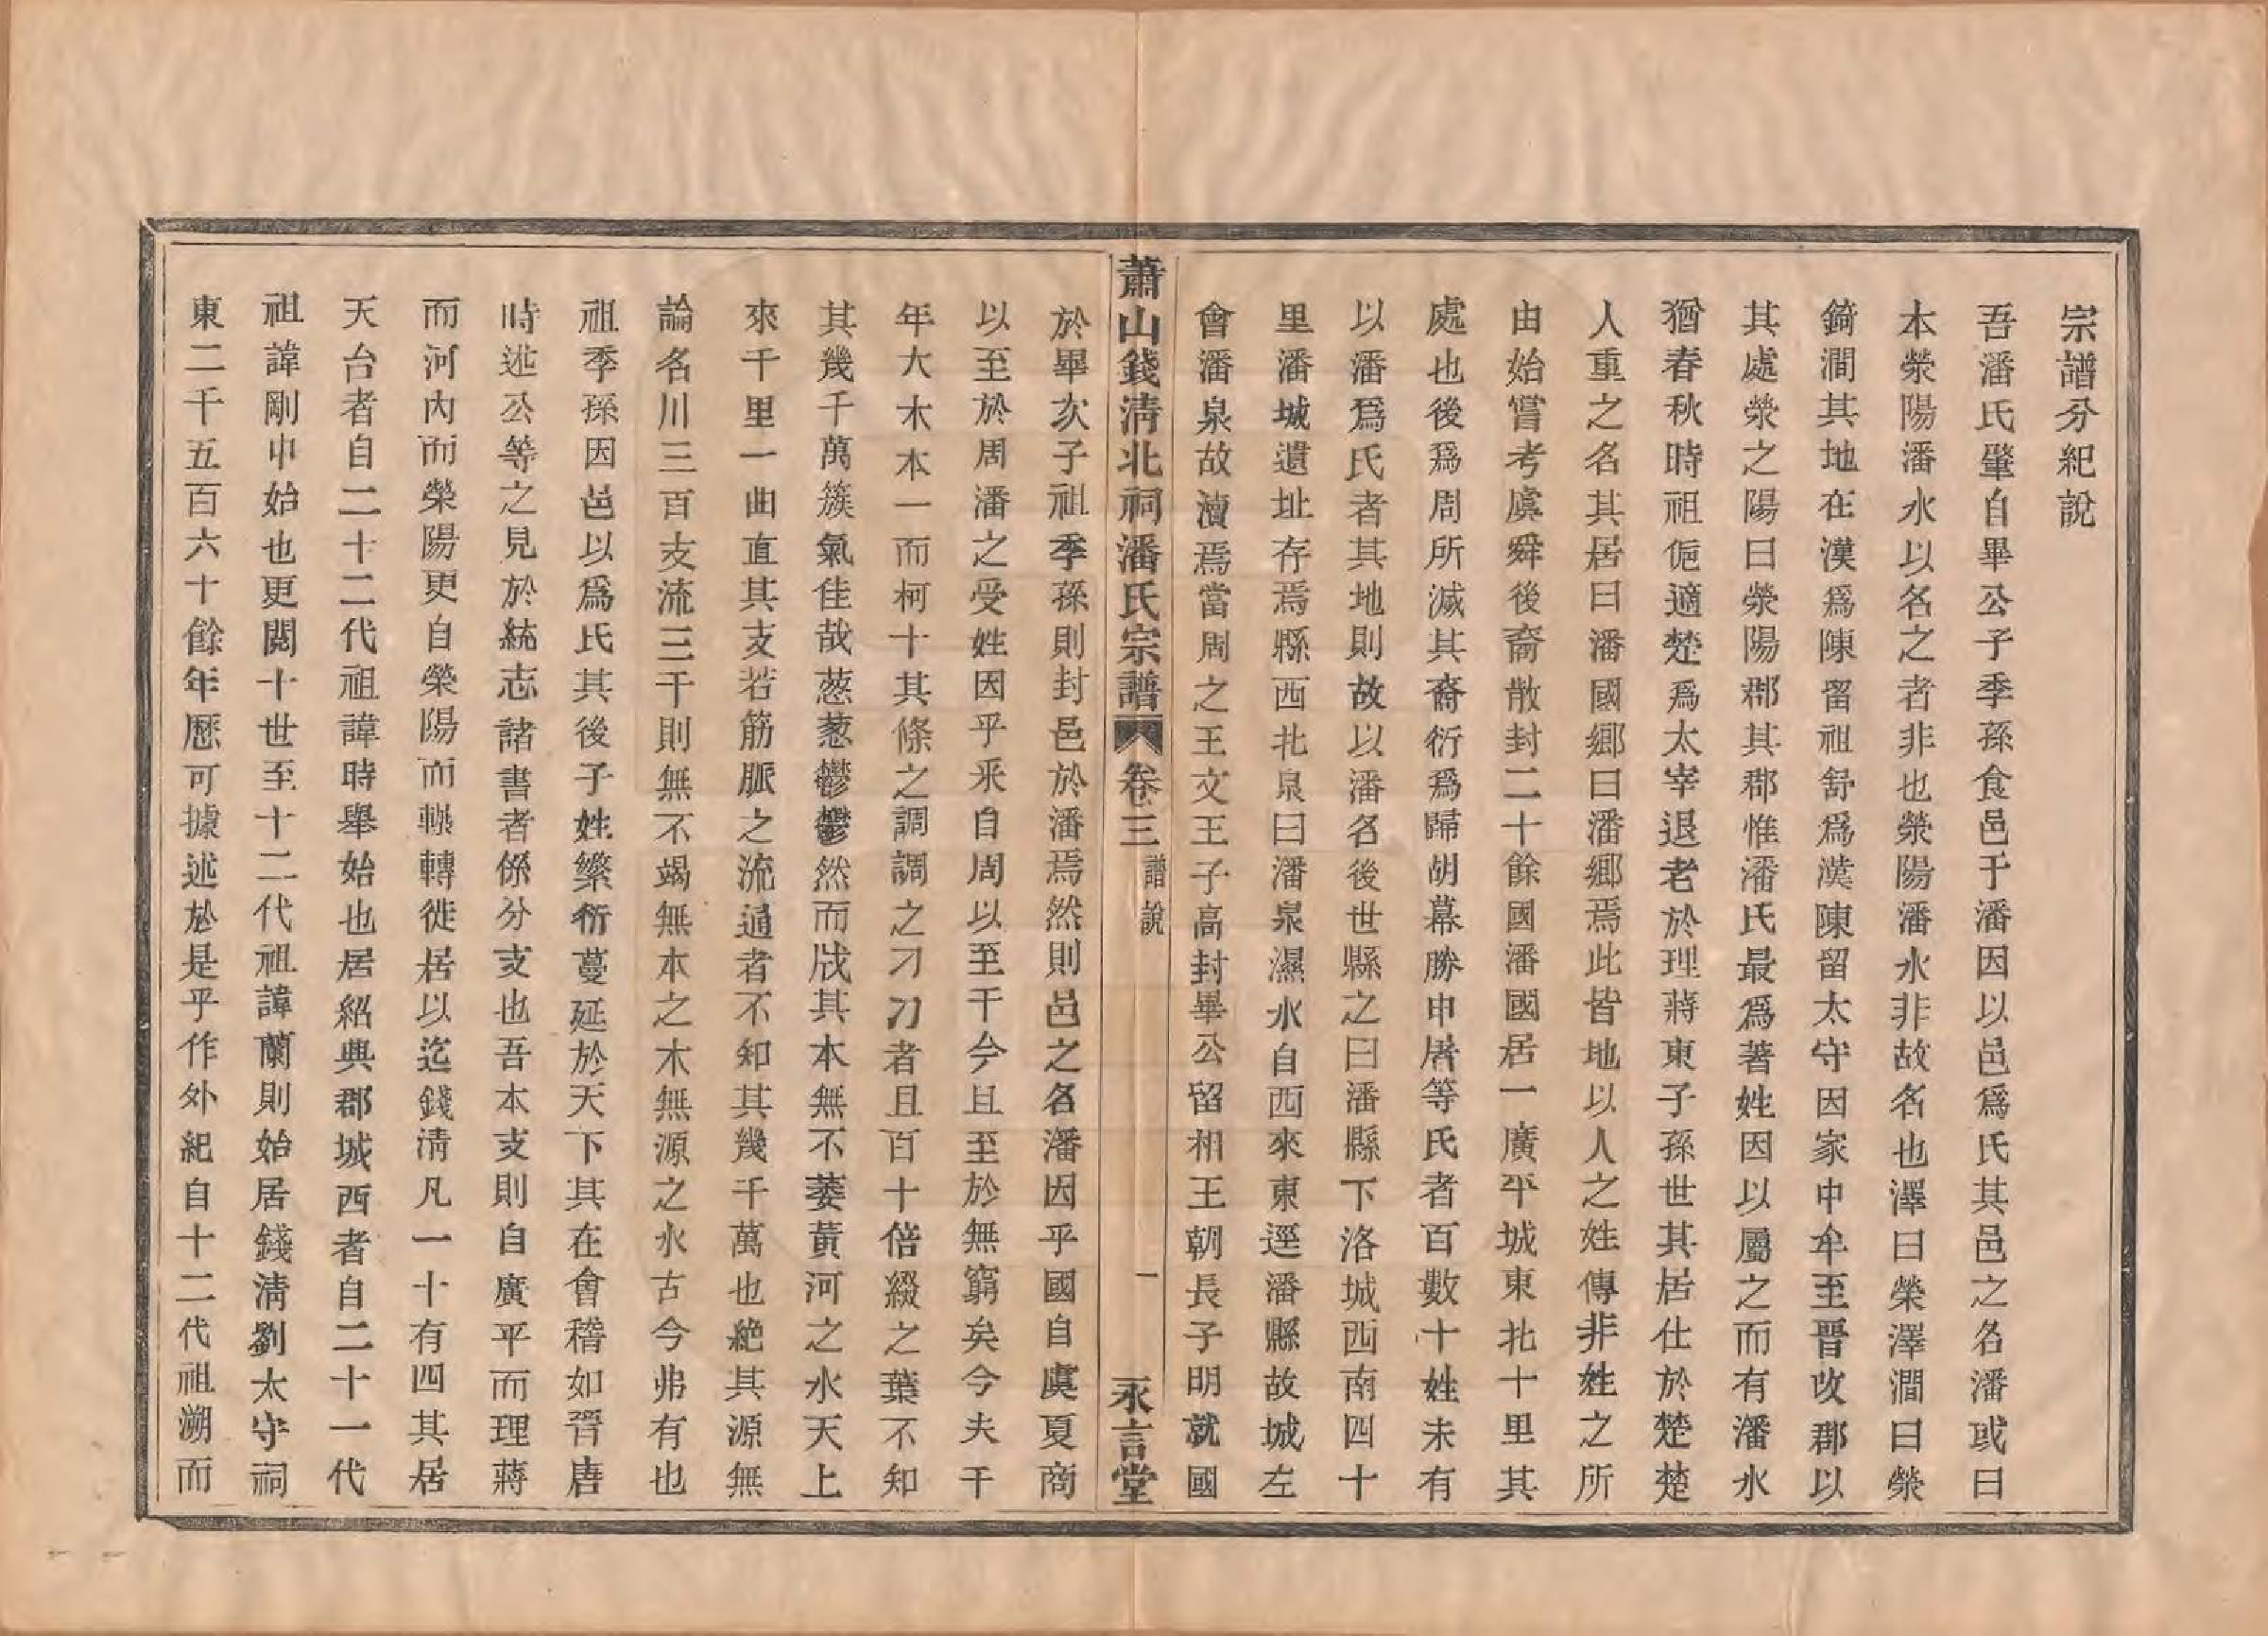 宗譜分紀說
吾潘氏肇自畢公子季孫食邑于潘因以邑爲氏其邑之名潘或曰
本滎陽潘水以名之者非也滎陽潘水非故名也澤曰滎澤澗曰滎
錡澗其地在漢爲陳留祖舒爲漢陳留太守因家中牟至晋改郡以
其處滎之陽曰滎陽郡其郡惟潘氏最爲著姓因以屬之而有潘水
猶春秋時祖傂適楚爲太宰退老於理蔣東子孫世其居仕於楚楚
人重之名其居曰潘國鄉曰潘鄉焉此皆地以人之姓傳非姓之所
由始嘗考虞舜後裔散封二十餘國潘國居一廣平城東北十里其
處也後爲周所滅其裔衍爲歸胡幕勝申屠等氏者百數十姓未有
以潘爲氏者其地則故以潘名後世縣之曰潘縣下洛城西南四十
里潘城遺址存焉縣西北泉曰潘泉濕水自西來東逕潘縣故城左
會潘泉故瀆焉當周之王文王子高封畢公留相王朝長子明就國
蕭山錢清北祠潘氏宗譜 卷三 譜說 一 永言堂
於畢次子祖季孫則封邑於潘焉然則邑之名潘因乎國自虞夏商
以至於周潘之受姓因乎釆自周以至于今且至於無窮矣今夫千
年大木本一而柯十其條之調調之刁刁者且百十倍綴之葉不知
其幾千萬簇氣佳哉葱葱鬱鬱然而戕其本無不萎黃河之水天上
來千里一曲直其支若筋脈之流通者不知其幾千萬也絕其源無
論名川三百支流三千則無不竭無本之木無源之水古今弗有也
祖季孫因邑以爲氏其後子姓繁衍蔓延於天下其在會稽如晉唐
時述公等之見於統志諸書者係分支也吾本支則自廣平而理蔣
而河內而滎陽更自滎陽而輾轉徙居以迄錢清凡一十有四其居
天台者自二十二代祖諱時舉始也居紹興郡城西者自二十一代
祖諱剛中始也更閱十世至十二代祖諱蘭則始居錢清劉太守祠
東二千五百六十餘年歷可據述於是乎作外紀自十二代祖溯而